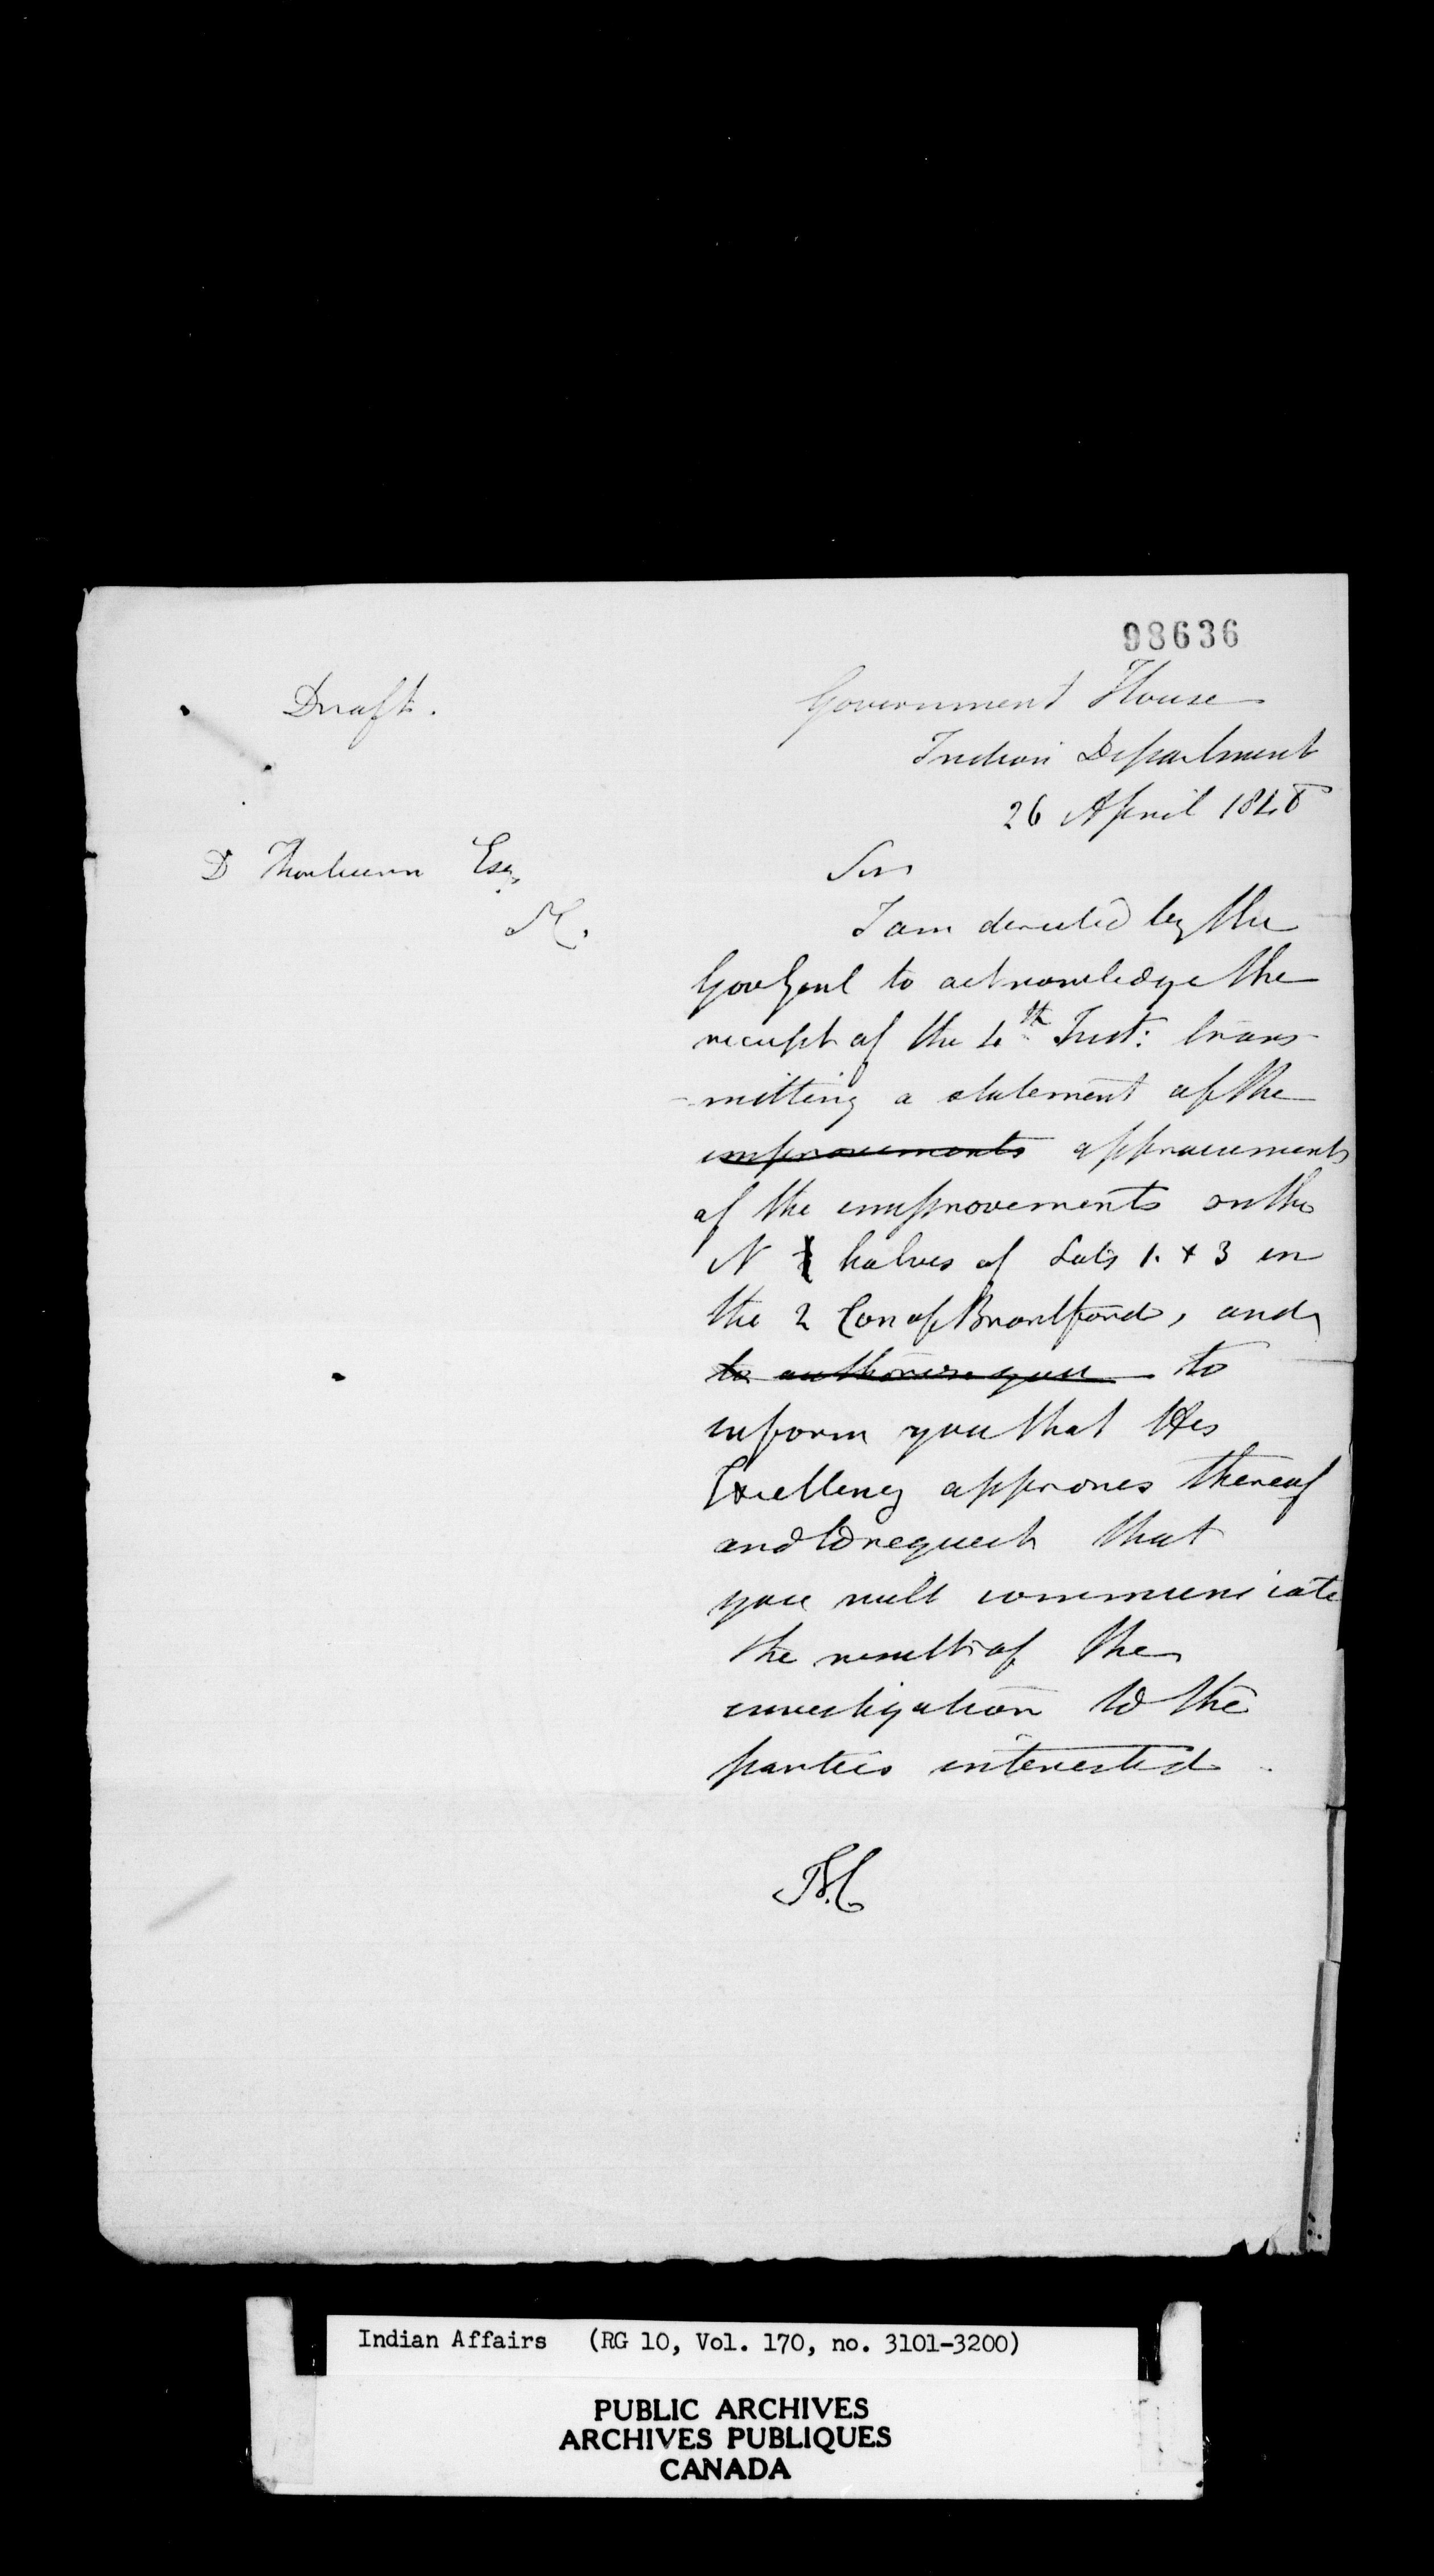 98636
Draft.
Government House
Indian Department
26 April 1848
D Thorburn Esq
Sir
I am directed by the
Gov Genl to acknowledge the
receipt of the 4th Inst: trans-
-mitting a statement of the
improvements appraisements
of the improvements on the
N halves of Lots 1. & 3 in
the 2 Con of Brantford, and
to authorise you to
inform you that His
Excellency approves thereof
and to request that
you will communicate
the result of the
investigation to the
parties interested.
Indian Affairs (RG 10, Vol. 170, no. 3101-3200)
PUBLIC ARCHIVES
ARCHIVES PUBLIQUES
CANADA